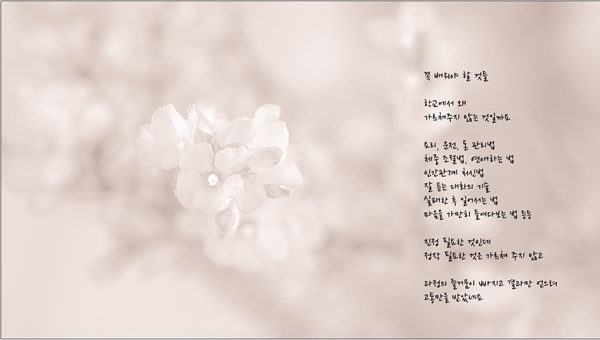 꼭 배워야 할 것들
학교에서 왜
가르쳐주지 않는 것일까요
요리, 운전, 돈 관리법
체중 조절법, 연애하는 법
인간관계 처신법
잘 듣는 대화의 기술
실패한 후 일어서는 법
마음을 가만히 들여다보는 법 등등
진정 필요한 것인데
정작 필요한 것은 가르쳐 주지 않고
과정의 즐거움이 빠지고 결과만 얻으려
고통만을 받았네요